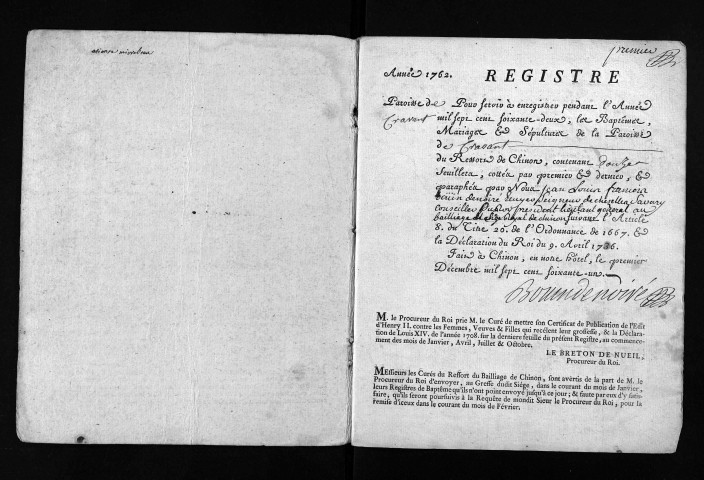 premier
Année 1762. REGISTRE
Paroisse de Cravant
Pour servir à enregistrer pendant l'Année
mil sept cent soixante-deux, les Baptêmes,
Mariages & Sépultures de la Paroisse
de Cravant
du Ressort de Chinon, contenant douze
feuillets, cottés par premier & dernier, &
paraphés par Nous Jean Louis François
seigneur de
conseiller du Roy president lieutenant general au
bailliage & siege Royal de chinon suivant l'Article
8. du Titre 20. de l'Ordonnance de 1667. &
la Déclaration du Roi du 9. Avril 1736.
Fait à Chinon, en notre hôtel, le premier
Décembre mil sept cent soixante-un.
M. le Procureur du Roi prie M. le Curé de mettre son Certificat de Publication de l'Edit
d'Henry II. contre les Femmes, Veuves & Filles qui recélent leur grossesse, & la Déclara-
tion de Louis XIV. de l'année 1708. sur la derniere feuille du présent Registre, au commence-
ment des mois de Janvier, Avril, Juillet & Octobre.
LE BRETON DE NUEIL,
Procureur du Roi.
MEssieurs les Curés du Ressort du Bailliage de Chinon, sont avertis de la part de M. le
Procureur du Roi d'envoyer, au Greffe dudit Siége, dans le courant du mois de Janvier,
leurs Registres de Baptême qu'ils n'ont point envoyé jusqu'à ce jour; & faute par eux d'y satis-
faire, qu'ils seront poursuivis à la Requête de mondit Sieur le Procureur du Roi, pour la
remise d'iceux dans le courant du mois de Février.